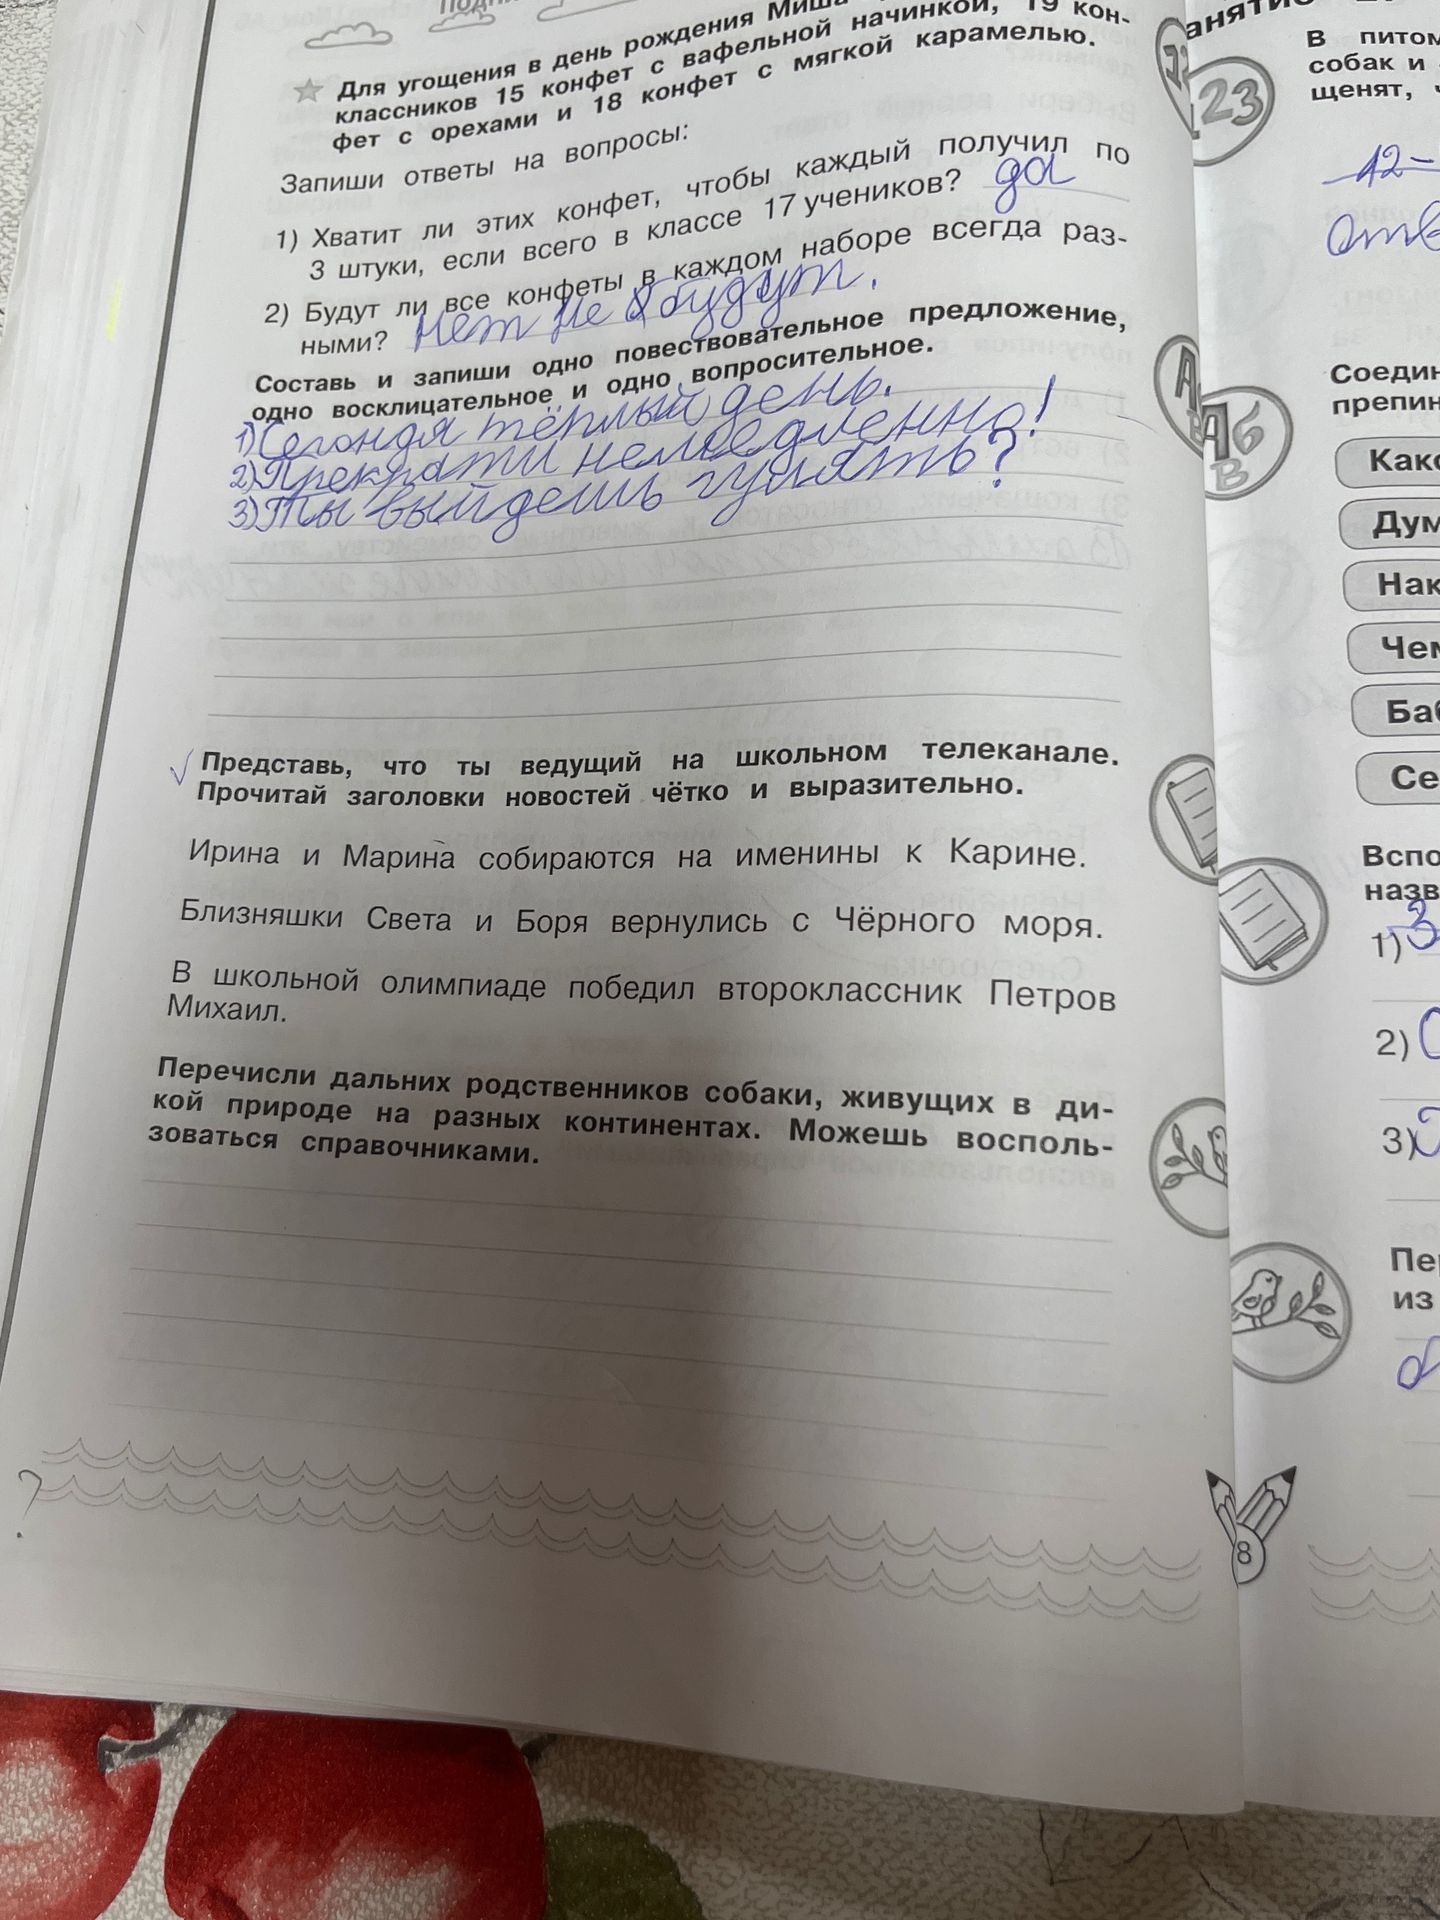 Для угощения в день рождения Миша
классников 15 конфет с вафельной начинкой, 19 кон-
фет с орехами и 18 конфет с мягкой карамелью.
Запиши ответы на вопросы:
1) Хватит ли этих конфет, чтобы каждый получил по
3 штуки, если всего в классе 17 учеников? да
2) Будут ли все конфеты в каждом наборе всегда раз-
ными? нет не будут.
Составь и запиши одно повествовательное предложение,
одно восклицательное и одно вопросительное.
1) Сегондя тёплый день.
2) Прекрати немедленно!
3) Ты выйдешь гулять?
Представь, что ты ведущий на школьном телеканале.
Прочитай заголовки новостей чётко и выразительно.
Ирина и Марина собираются на именины к Карине.
Близняшки Света и Боря вернулись с Чёрного моря.
В школьной олимпиаде победил второклассник Петров
Михаил.
Перечисли дальних родственников собаки, живущих в ди-
кой природе на разных континентах. Можешь восполь-
зоваться справочниками.
?
123
В питом
собак и
щенят, ч
12-
отв
АБ
В
Соедин
препин
Како
Дум
Нак
Чем
Баб
Се
Вспо
назв
1) З
2) С
3)
Пе
из
8